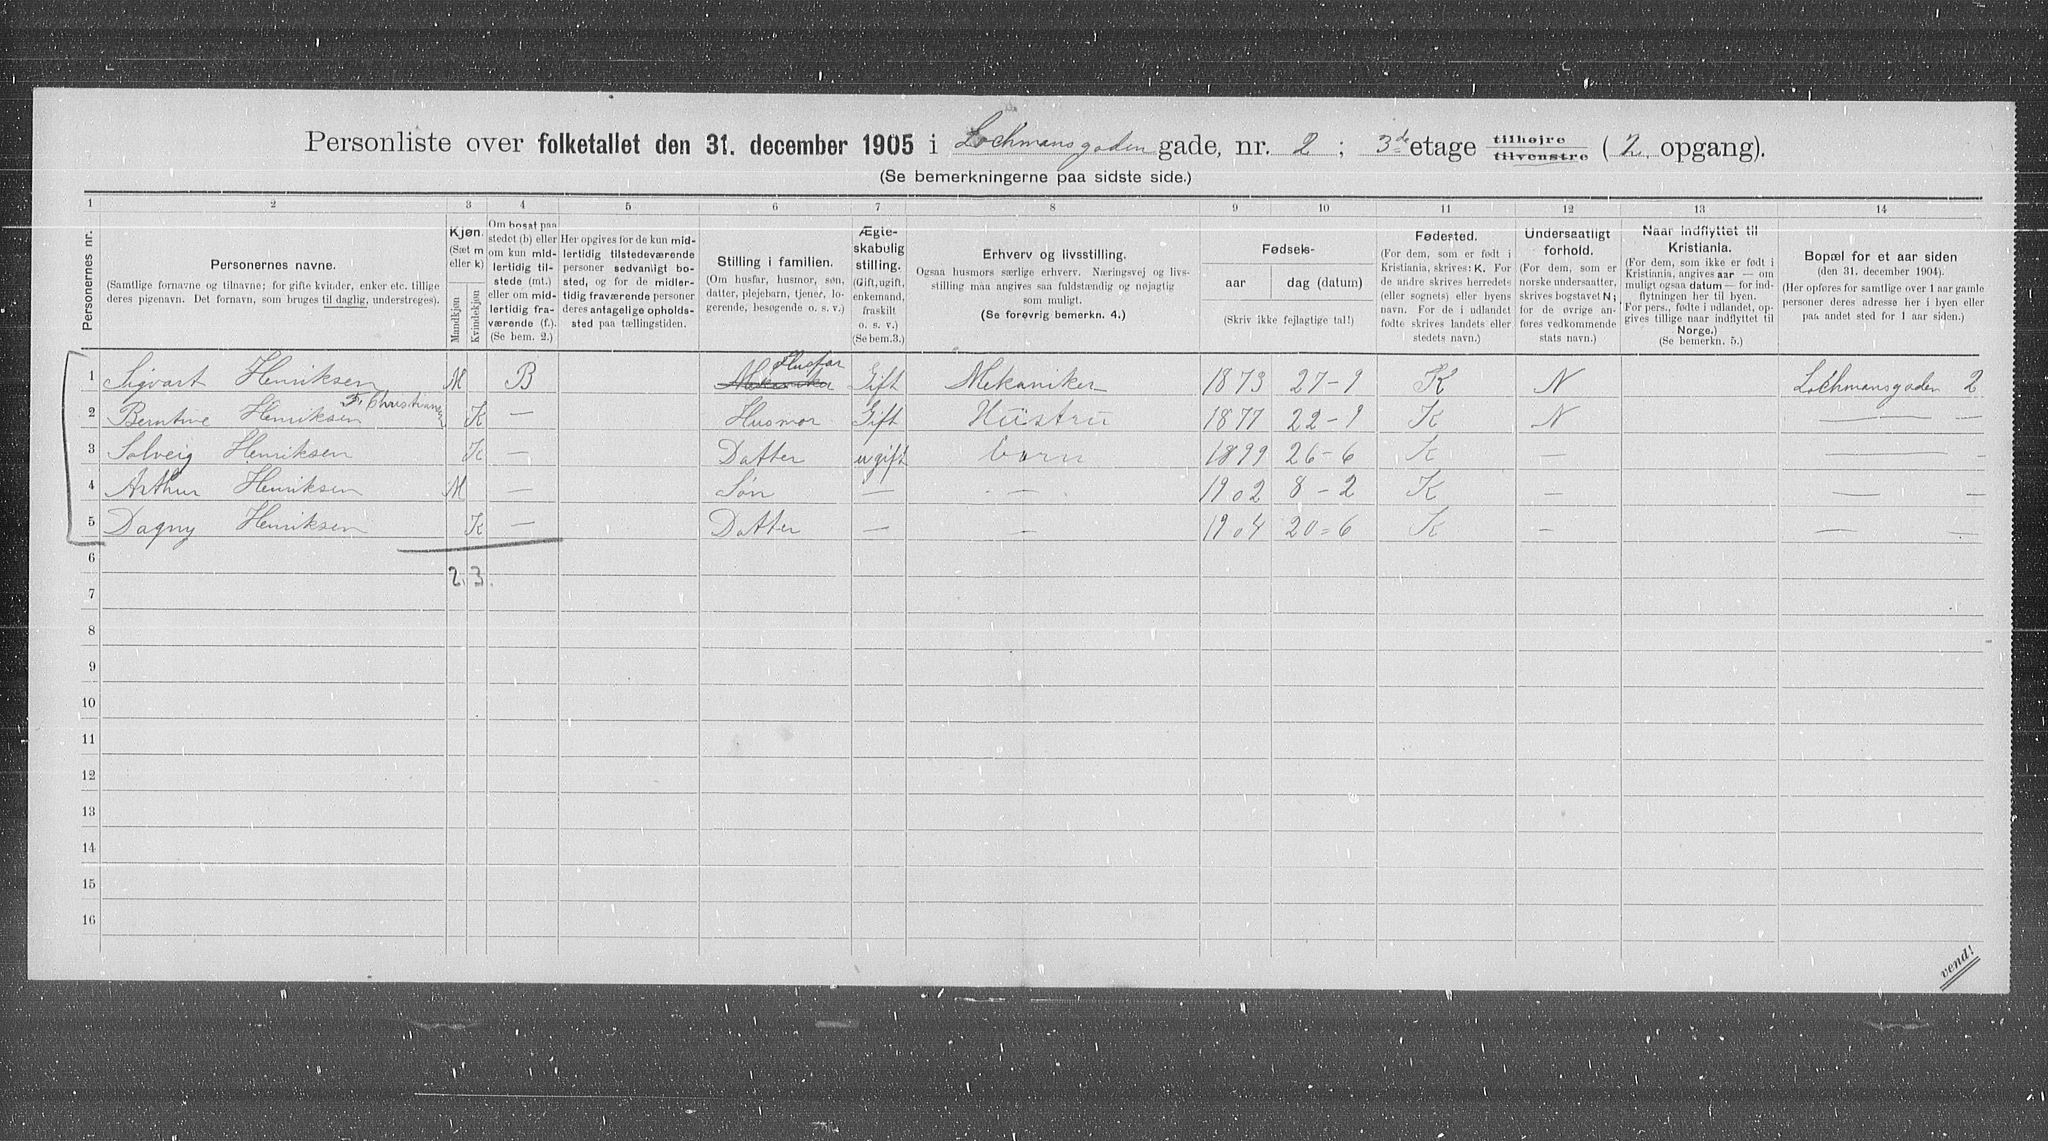 Personliste over folketallet den 31. december 1905 i Lochmansgaden gade, nr. 2 ; 3de etage tilhøjre tilvenstre ( 2. opgang).
(Se bemerkningerne paa sidste side.)
1 2 3 4 5 6 7 8 9 10 11 12 13 14
Personernes nr.
Personernes navne.
(Samtlige fornavne og tilnavne; for gifte kvinder, enker etc. tillige
deres pigenavn. Det fornavn, som bruges til daglig, understreges).
Kjøn.
(Sæt m
eller k)
Mandkjøn
Kvindekjøn
Om bosat paa
stedet (b) eller
om kun mid-
lertidig til-
stede (mt.)
eller om mid-
lertidig fra-
værende (f.).
(Se bem. 2.)
Her opgives for de kun mid-
lertidig tilstedeværende
personer sedvanligt bo-
sted, og for de midler-
tidig fraværende personer
deres antagelige opholds-
sted paa tællingstiden.
Stilling i familien.
(Om husfar, husmor, søn,
datter, plejebarn, tjener, lo-
gerende, besøgende o. s. v.)
Ægte-
skabulig
stilling.
(Gift, ugift,
enkemand,
fraskilt
o. s. v.)
(Se bem.3.)
Erhverv og livsstilling.
Ogsaa husmors særlige erhverv. Næringsvej og livs-
stilling maa angives saa fuldstændig og nøjagtig
som muligt.
(Se forøvrig bemerkn. 4.)
Fødsels-
aar dag (datum)
(Skriv ikke fejlagtige tal!)
Fødested.
(For dem, som er født i
Kristiania, skrives: K. For
de andre skrives herredets
(eller sognets) eller byens
navn. For de i udlandet
fødte skrives landets eller
stedets navn.)
Undersaatligt
forhold.
(For dem, som er
norske undersaatter,
skrives bogstavet N;
for de øvrige an-
føres vedkommende
stats navn.)
Naar indflyttet til
Kristiania.
(For dem, som ikke er født i
Kristiania, angives aar — om
muligt ogsaa datum — for ind-
flytningen her til byen.
For pers., fødte i udlandet, op-
gives tillige naar indflyttet til
Norge.)
(Se bemerkn. 5.)
Bopæl for et aar siden
(den 31. december 1904).
(Her opføres for samtlige over 1 aar gamle
personer deres adresse her i byen eller
paa andet sted for 1 aar siden.)
1 Sigvart Henriksen M B Mekaniker Husfar Gift Mekaniker 1873 27-9 K N Lochmansgaden 2
2 Berntine Henriksen F. Christiansen K — Husmor Gift Hustru 1877 22-9 K N —
3 Solveig Henriksen K — Datter ugift barn 1899 26-6 K — — -
4 Arthur Henriksen M — Søn — — 1902 8-2 K — — -
5 Dagny Henriksen K — Datter — — 1904 20-6 K — — -
6
2. 3.
7
8
9
10
11
12
13
14
15
16
vend!